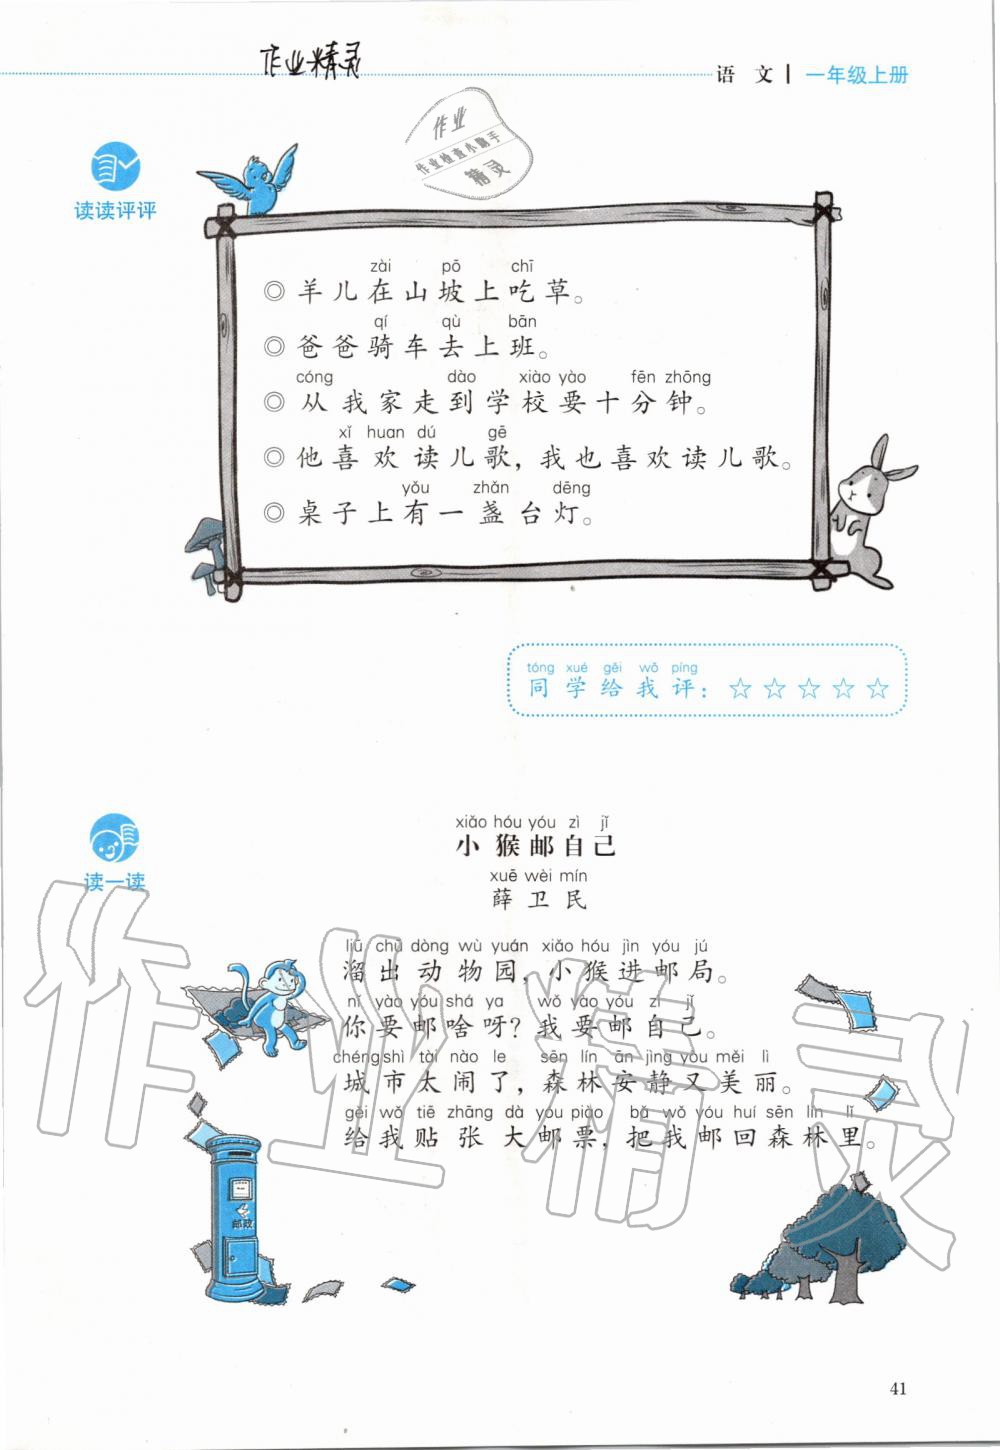 作业精灵
语 文 一年级上册
作业
作业检查小助手
精灵
读读评评
zài pō chī
◎ 羊儿在山坡上吃草。
qí qù bān
◎ 爸爸骑车去上班。
cóng dào xiào yào fēn zhōng
◎ 从我家走到学校要十分钟。
xǐ huan dú gē
◎ 他喜欢读儿歌，我也喜欢读儿歌。
yǒu zhǎn dēng
◎ 桌子上有一盏台灯。
tóng xué gěi wǒ píng
同学给我评：☆☆☆☆☆
读一读
xiǎo hóu yóu zì jǐ
小猴邮自己
xuē wèi mín
薛卫民
liū chū dòng wù yuán xiǎo hóu jìn yóu jú
溜出动物园，小猴进邮局。
nǐ yào yóu shá ya wǒ yào yóu zì jǐ
你要邮啥呀？我要邮自己。
chéng shì tài nào le sēn lín ān jìng yòu měi lì
城市太闹了，森林安静又美丽。
gěi wǒ tiē zhāng dà yóu piào bǎ wǒ yóu huí sēn lín lǐ
给我贴张大邮票，把我邮回森林里。
邮政
作业精灵
41